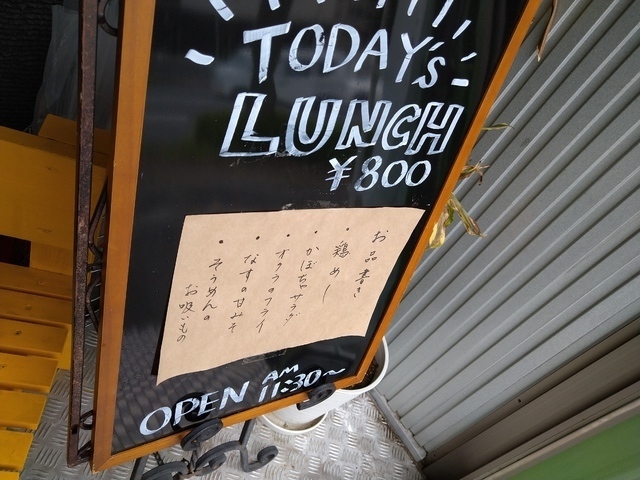 TODAY's
LUNCH
¥800
お品書き
・鶏めし
・かぼちゃサラダ
・オクラのフライ
・なすの甘みそ
・そうめんの
お吸いもの
OPEN AM 11:30~